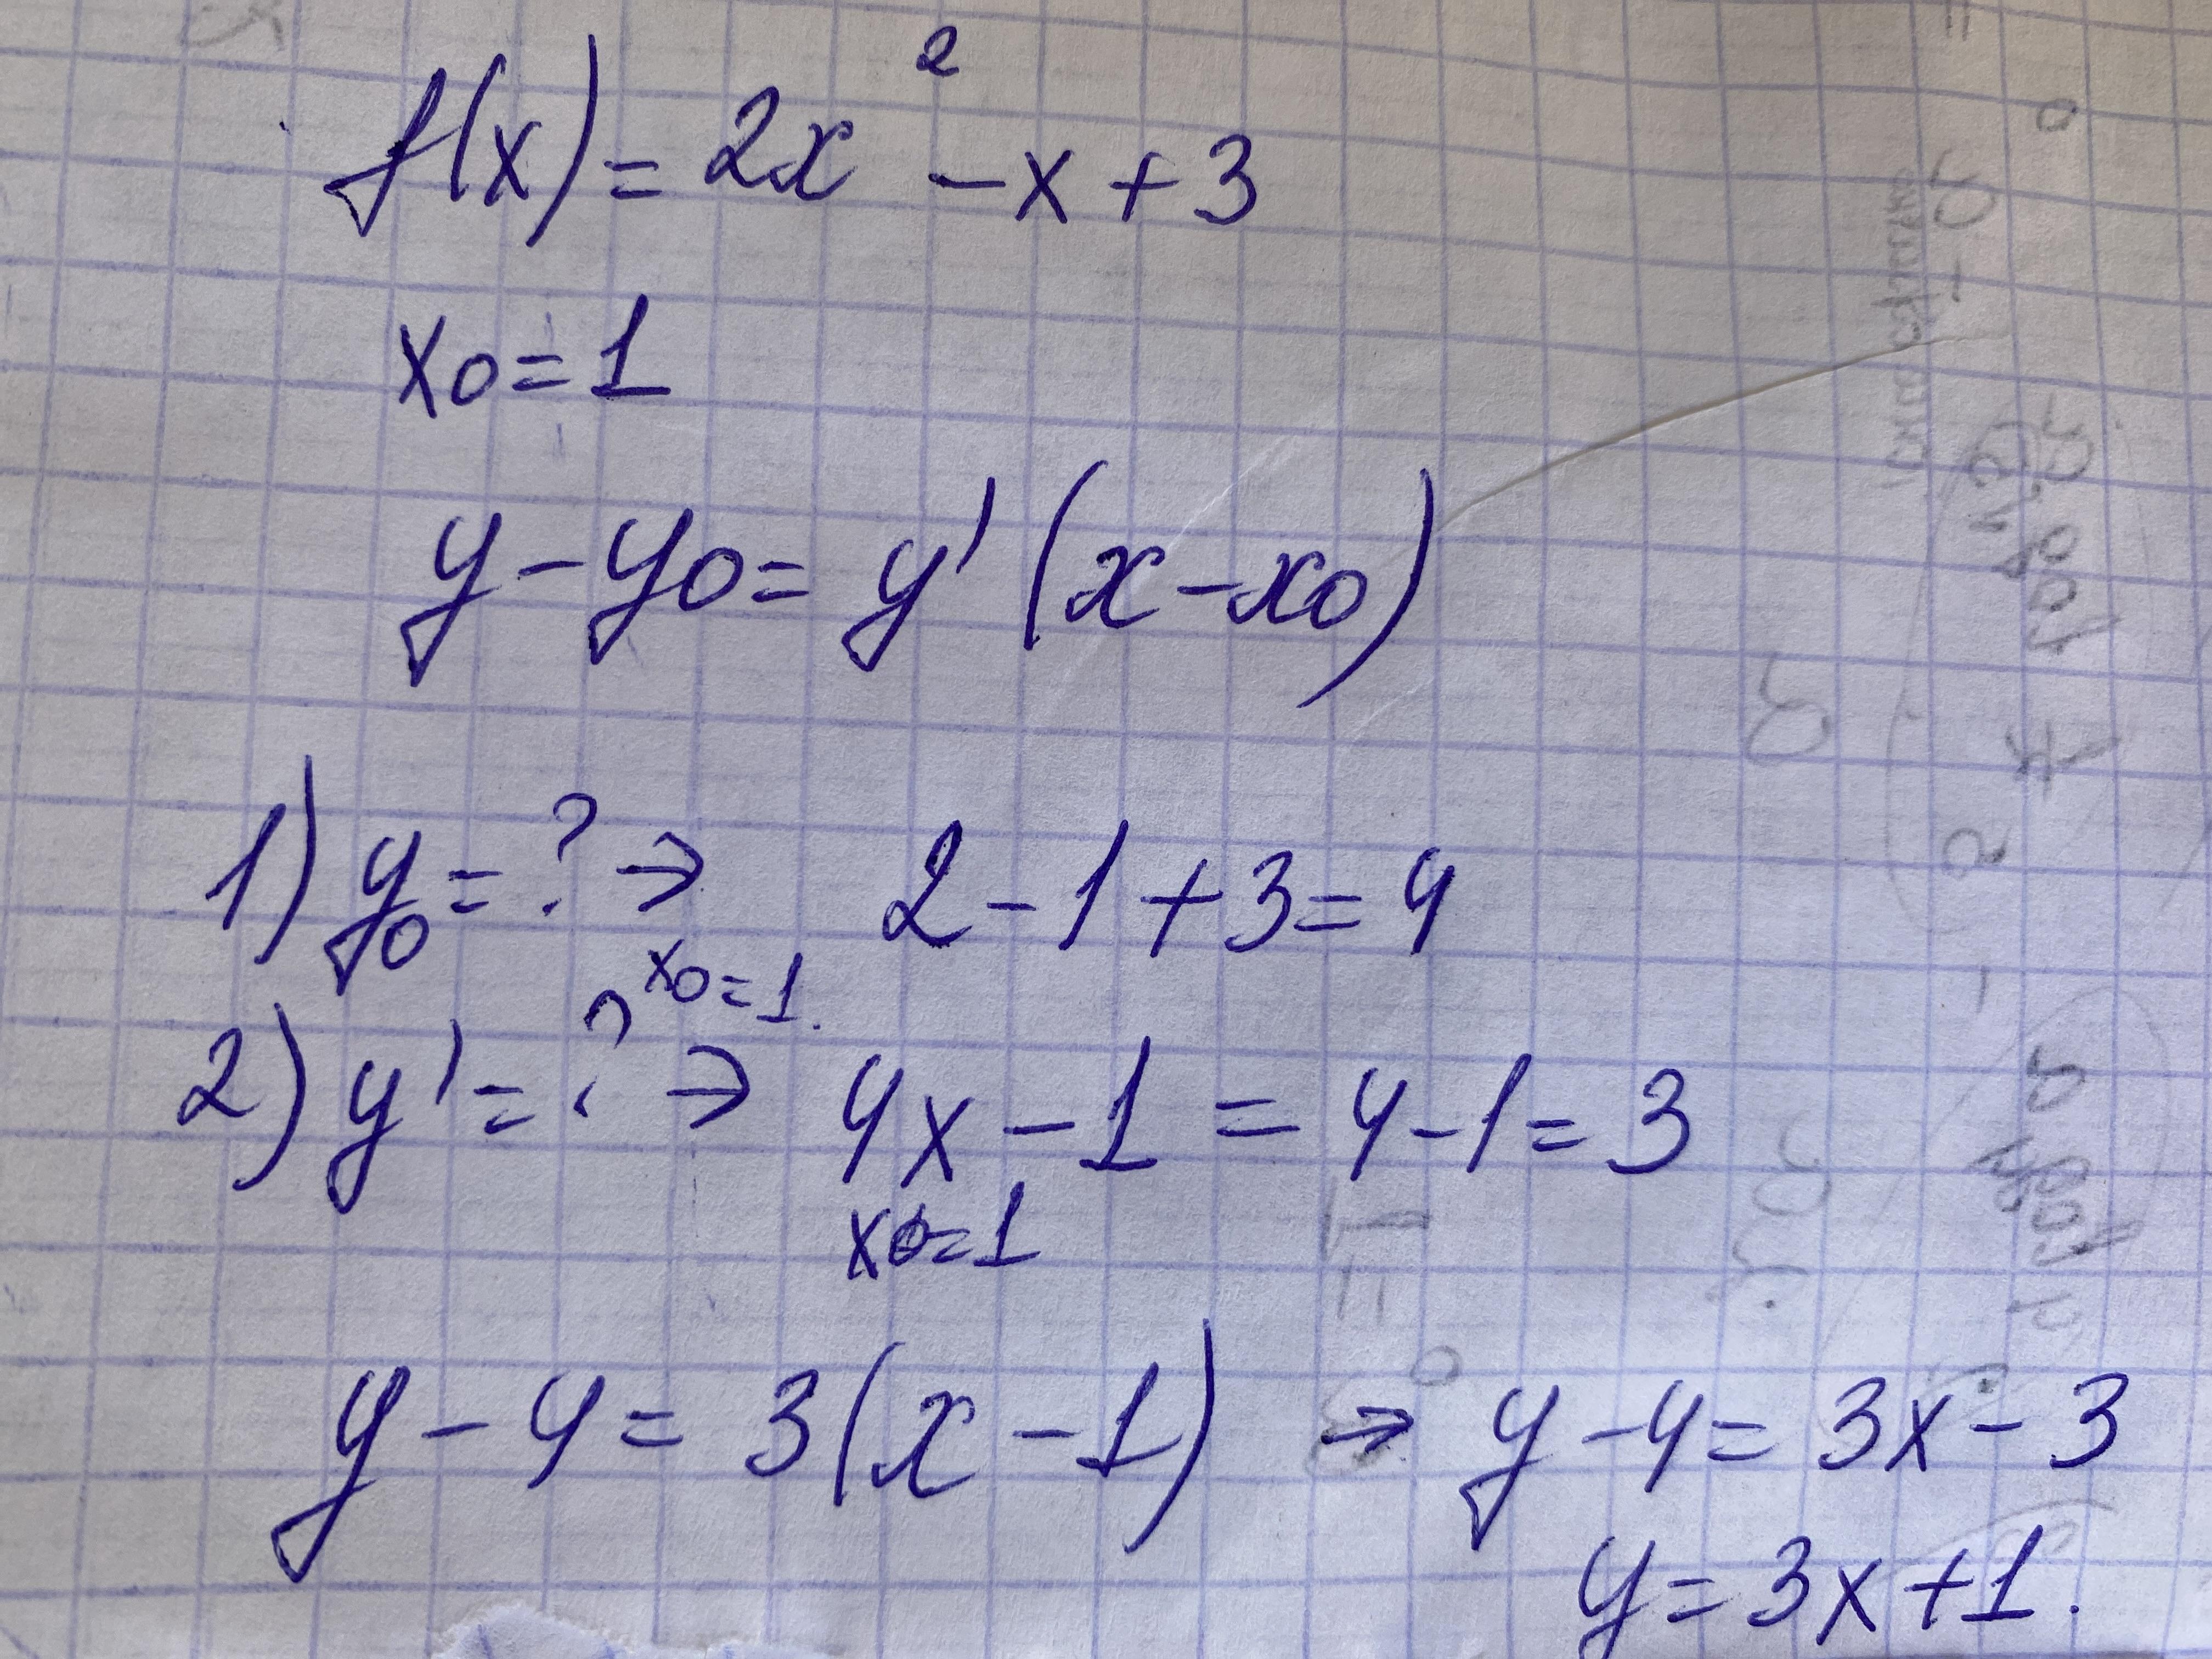 f(x) = 2x² - x + 3
x0 = 1
y - y0 = y' (x - x0)
1) y0 = ? → 2 - 1 + 3 = 4
x0 = 1.
2) y' = ? → 4x - 1 = 4 - 1 = 3
x0 = 1
y - 4 = 3(x - 1) → y - 4 = 3x - 3
y = 3x + 1.